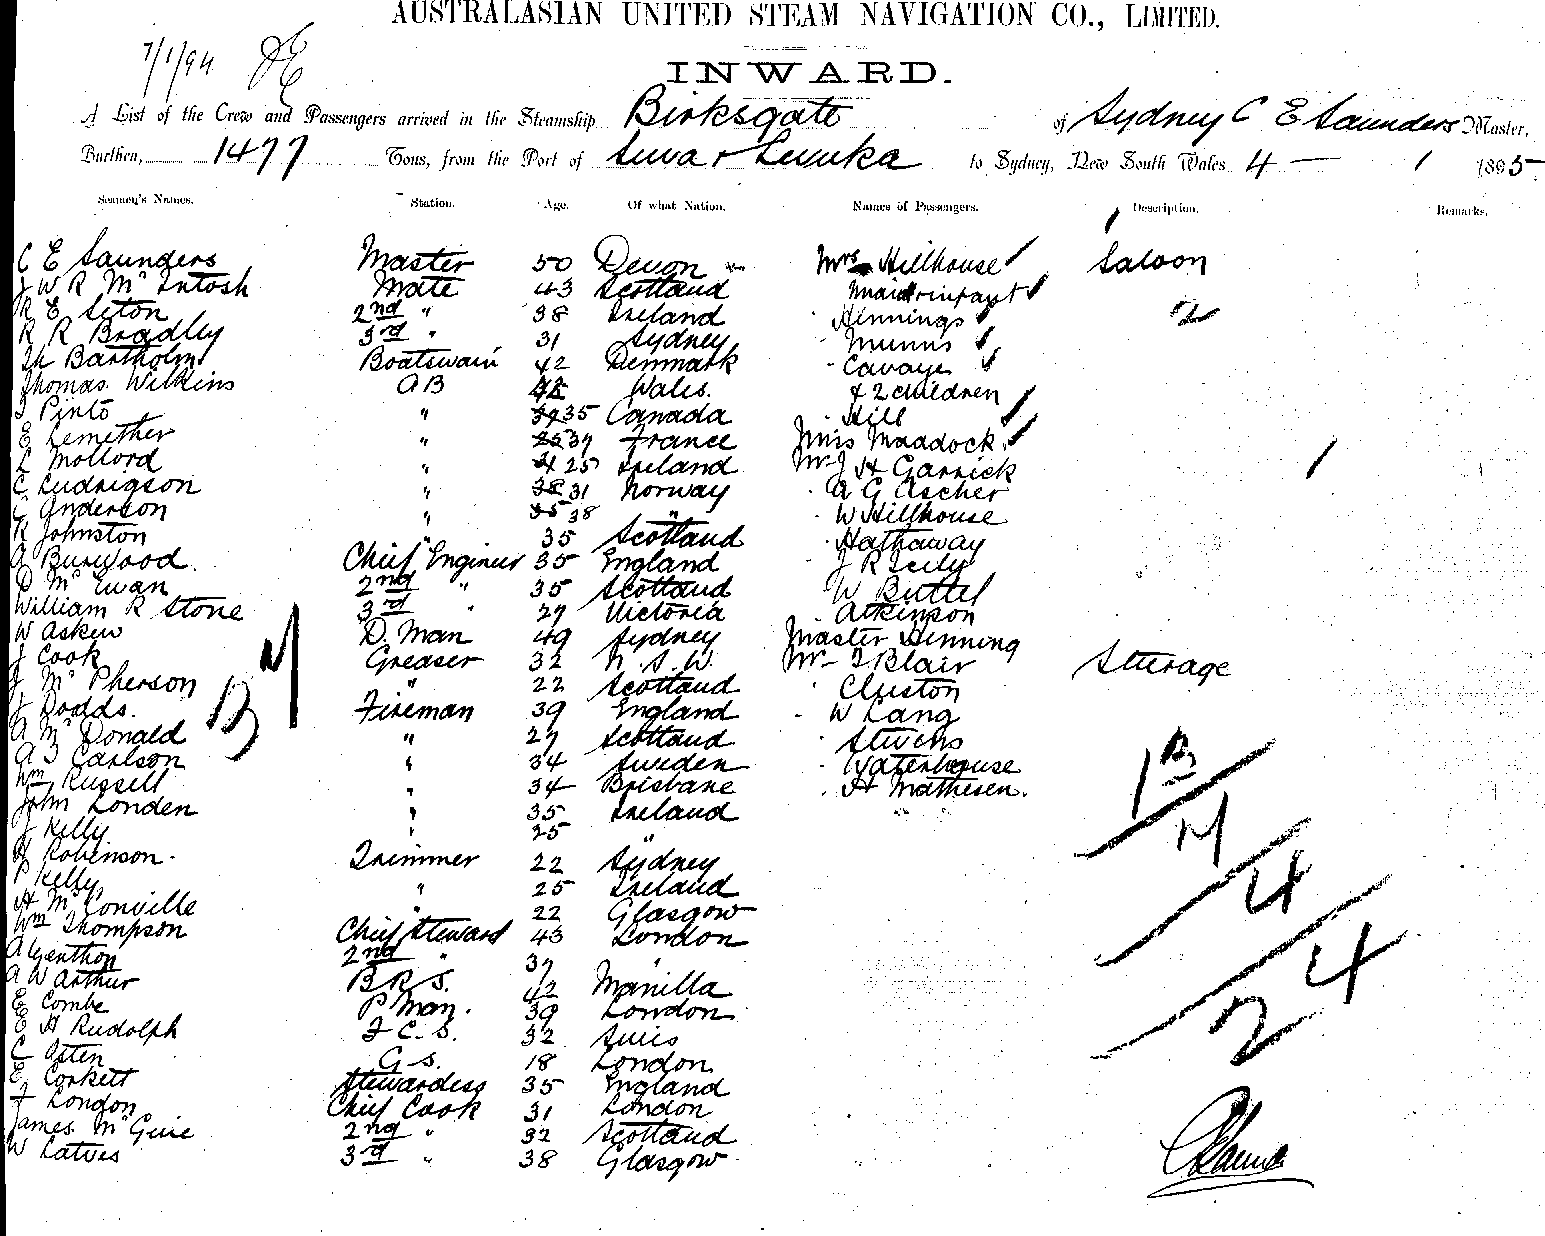 AUSTRALASIAN UNITED STEAM NAVIGATION CO., LIMITED.
7/1/94
INWARD.
A List of the Crew and Passengers arrived in the Steamship Birksgate of Sydney C E Saunders Master,
Burthen, 1477 Tons, from the Port of Suva & Levuka to Sydney, New South Wales 4 - 1 1895
Seamen's Names. Station. Age. Of what Nation. Names of Passengers. Description. Remarks.
C E Saunders Master 50 Devon Mrs Hillhouse Saloon
J W R McIntosh Mate 43 Scotland maid & infant
R E Seton 2nd " 38 Ireland " Hennings 2
R R Bradley 3rd " 31 Sydney " Munns
Bartholm Boatswain 42 Denmark " Cavaye
Thomas Wilkins AB 42 Wales. & 2 children
Pinto " 35 Canada " Hill
E Lemether " 39 France Miss Maddock
L Mollord " 25 Ireland Mr J H Garrick
C Ludrigson " 31 Norway " A G Ascher
C Anderson " 38 " W Hillhouse
R Johnston " 35 Scotland " Hathaway
A Burwood Chief Engineer 35 England
D McEwan 2nd " 35 Scotland W Buttel
William R Stone 3rd " 27 Victoria Atkinson
W Askew D. Man 49 Sydney Master Henning
J Cook Greaser 32 N. S. W. Mr Blair Steerage
J McPherson " 22 Scotland " Cluston
J Dodds. Fireman 39 England " W Lang
A McDonald " 27 Scotland Stevens
Carlson " 34 Sweden " Waterhouse
Wm Russell " 34 Brisbane " H Mathesen.
John Londen " 35 Ireland
J Kelly " 25 "
H Robinson. Trimmer 22 Sydney
P Kelly " 25 Ireland
H McConville 22 Glasgow
Wm Thompson Chief Steward 43 London
2nd " 37 "
A W Arthur B R S. 42 Manilla
E Combe P Man. 39 London
E H Rudolph F C. S. 32
C Osten G S. 18 London
E Corkett Stewardess 35 England
F London Chief Cook 31 London
James McGuie 2nd " 32 Scotland
W Latves 3rd " 38 Glasgow